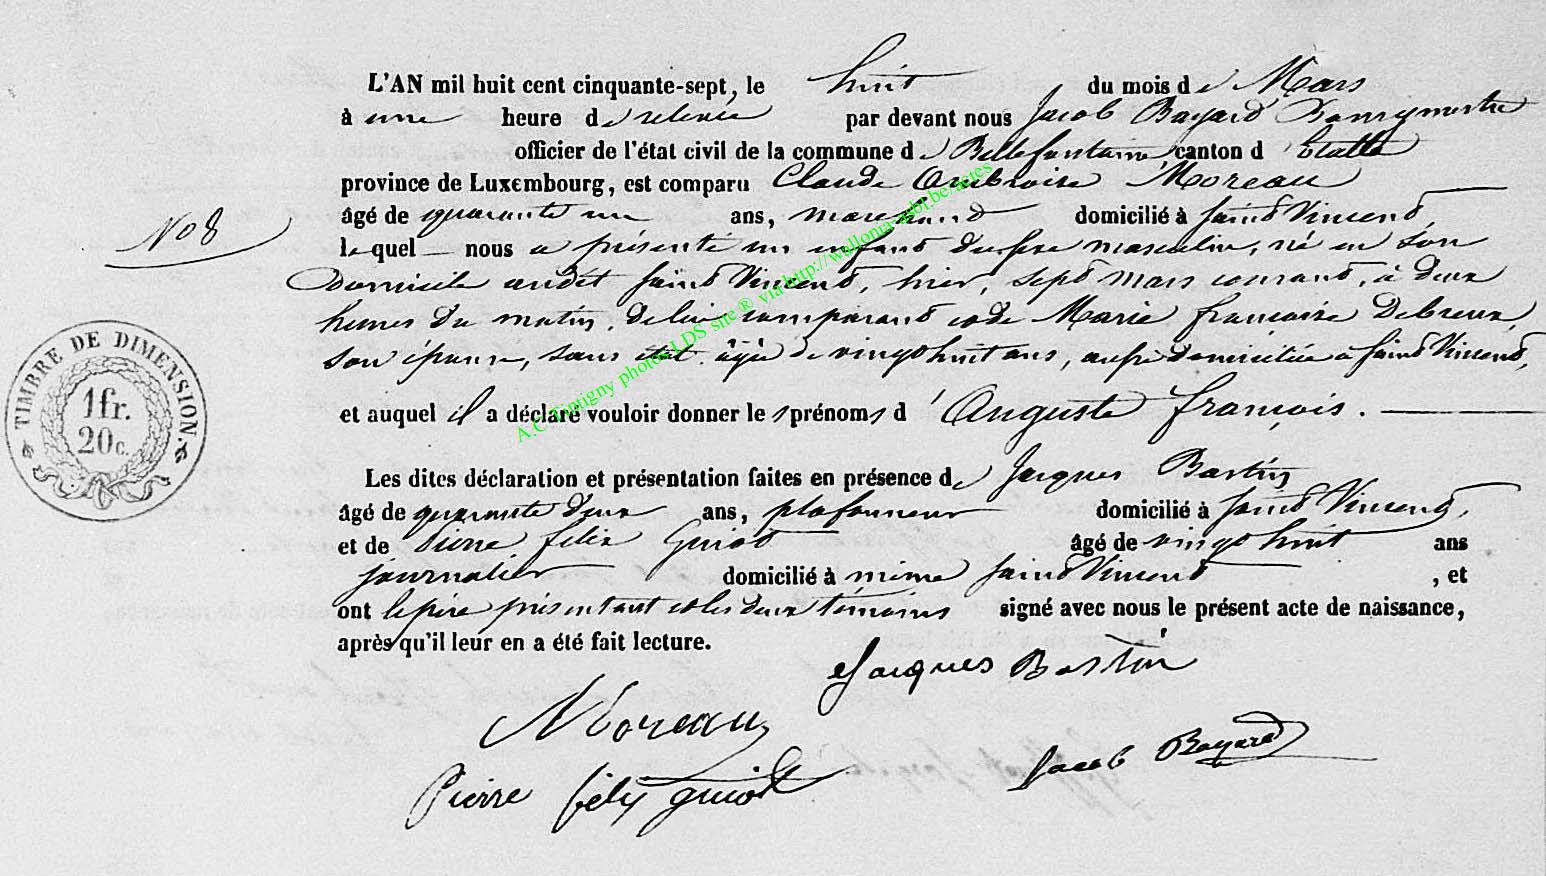 L'AN mil huit cent cinquante-sept, le huit du mois de Mars
à une heure de relevée par devant nous Jacob Bayard Bourgmestre
officier de l'état civil de la commune de Bellefontaine, canton d'Etalle
province de Luxembourg, est comparu Claude Ambroise Moreau
âgé de quarante un ans, marchand domicilié à Saint Vincent,
No 8
lequel nous a présenté un enfant du sexe masculin, né en son
domicile audit Saint Vincent, hier, sept mars courant, à deux
heures du matin, de lui comparant et de Marie françoise Debreux,
son épouse, sans état, âgée de vingt huit ans, aussi domiciliée à Saint Vincent,
et auquel il a déclaré vouloir donner les prénoms d'Auguste françois.
TIMBRE DE DIMENSION.
1 fr.
20 c.
Les dites déclaration et présentation faites en présence de Jacques Bastin
âgé de quarante deux ans, plafonneur domicilié à Saint Vincent,
et de Pierre felix Guiot âgé de vingt huit ans
journalier domicilié à même Saint Vincent, et
ont le père présentant et les deux témoins signé avec nous le présent acte de naissance,
après qu'il leur en a été fait lecture.
Jacques Bastin
Moreau
Jacob Bayard
Pierre félix guiot
A.C Tintigny photos LDS site ® via http://wallonia-asbl.be/actes